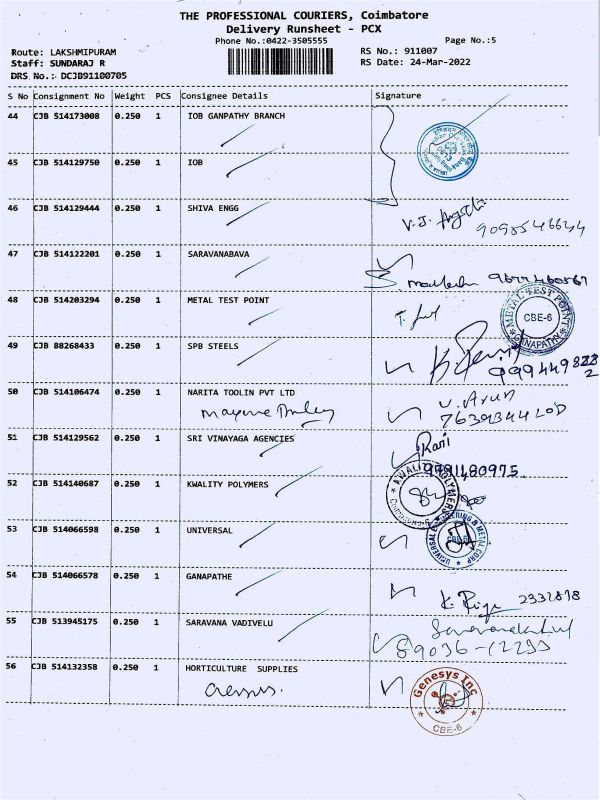 THE PROFESSIONAL COURIERS, Coimbatore
Delivery Runsheet - PCX
Phone No.:0422-3505555 Page No.:5
Route: LAKSHMIPURAM RS No.: 911007
Staff: SUNDARAJ R RS Date: 24-Mar-2022
DRS No.: DCJB91100705
S No Consignment No Weight PCS Consignee Details Signature
44 CJB 514173008 0.250 1 IOB GANPATHY BRANCH
45 CJB 514129750 0.250 1 IOB
46 CJB 514129444 0.250 1 SHIVA ENGG
V.J.
47 CJB 514122201 0.250 1 SARAVANABAVA
48 CJB 514203294 0.250 1 METAL TEST POINT
METAL TEST POINT
CBE-6
GANAPATHY
49 CJB 88268433 0.250 1 SPB STEELS
50 CJB 514106474 0.250 1 NARITA TOOLIN PVT LTD
V. Arun
51 CJB 514129562 0.250 1 SRI VINAYAGA AGENCIES
Rani
9791480975
52 CJB 514140687 0.250 1 KWALITY POLYMERS
KWALITY POLYMERS
53 CJB 514066598 0.250 1 UNIVERSAL
UNIVERSAL & METAL CORP
CBE-6
54 CJB 514066578 0.250 1 GANAPATHE
2332878
55 CJB 513945175 0.250 1 SARAVANA VADIVELU
56 CJB 514132358 0.250 1 HORTICULTURE SUPPLIES
Genesys Inc
CBE-6